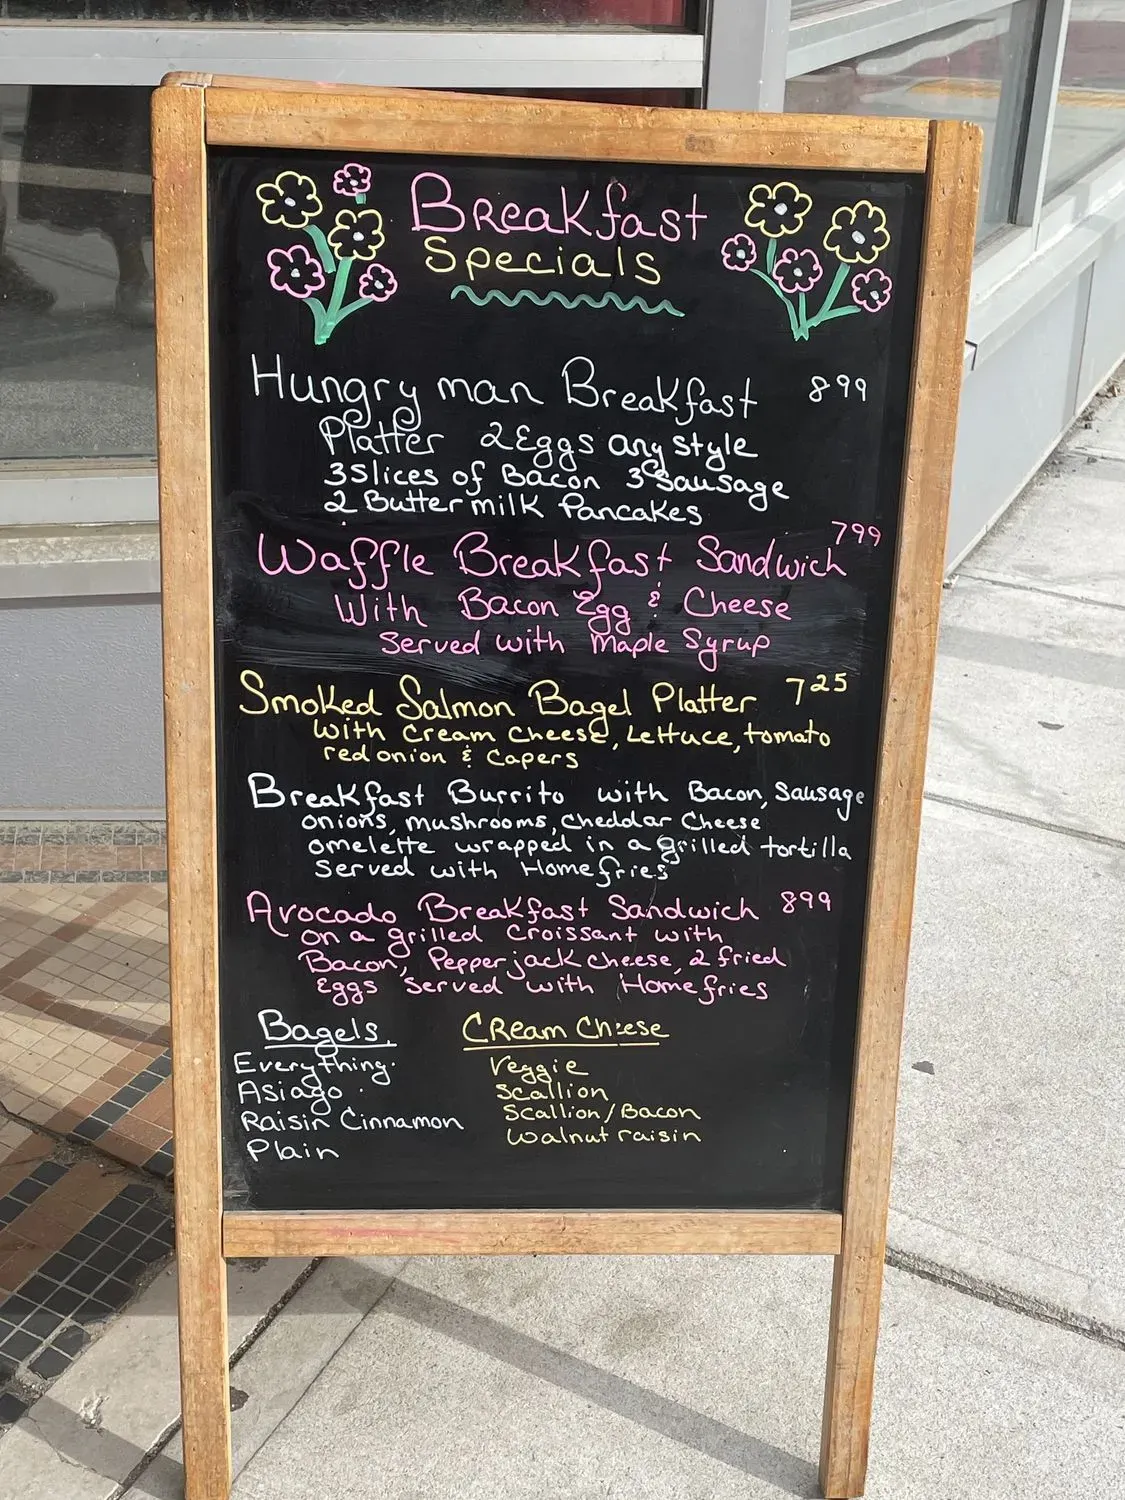 Breakfast
Specials
Hungry man Breakfast 899
Platter 2 Eggs any style
3 Slices of Bacon 3 Sausage
2 Buttermilk Pancakes
Waffle Breakfast Sandwich 799
With Bacon Egg & Cheese
Served with Maple Syrup
Smoked Salmon Bagel Platter 725
with Cream Cheese, Lettuce, tomato
red onion & Capers
Breakfast Burrito with Bacon, Sausage
onions, mushrooms, cheddar Cheese
omelette wrapped in a grilled tortilla
Served with Homefries
Avocado Breakfast Sandwich 899
on a grilled Croissant with
Bacon, Pepperjack cheese, 2 fried
Eggs Served with Homefries
Bagels
Everything
Asiago
Raisin Cinnamon
Plain
Cream Cheese
Veggie
Scallion
Scallion/Bacon
Walnut raisin